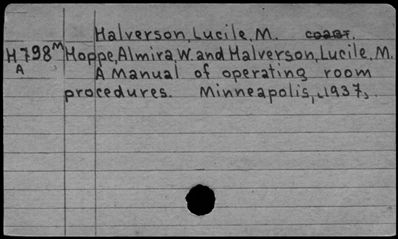 Halverson, Lucile, M. coaut.
H798M Hoppe, Almira, W. and Halverson, Lucile, M.
A A Manual of operating room
procedures. Minneapolis, [1937].